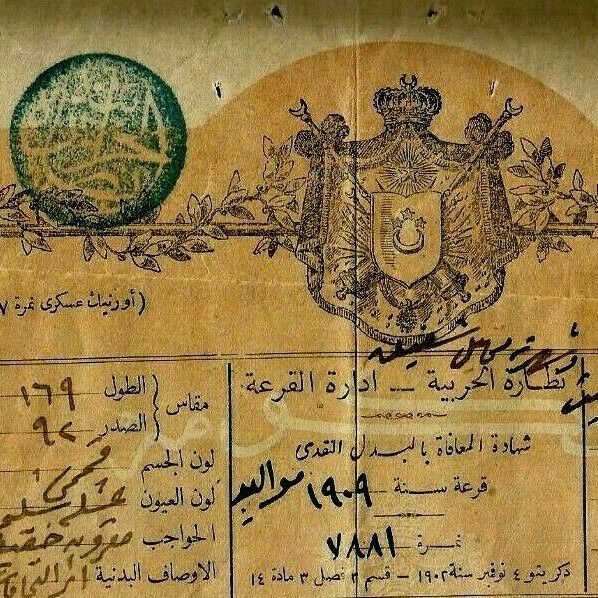 (أورنيك عسكرى نمرة ٧
نظارة الحربية — ادارة القرعة
شهادة المعافاة بالبدل النقدى
قرعة سنة ١٩٠٩ مواليد
نمرة ٧٨٨١
دكريتو ٤ نوفمبر سنة ١٩٠٢ — قسم ٢ فصل ٣ مادة ١٤
مقاس { الطول ١٦٩
الصدر ٩٢
لون الجسم قمحى
لون العيون عسلى
الحواجب مقرونه خفيفه
الاوصاف البدنية أثر